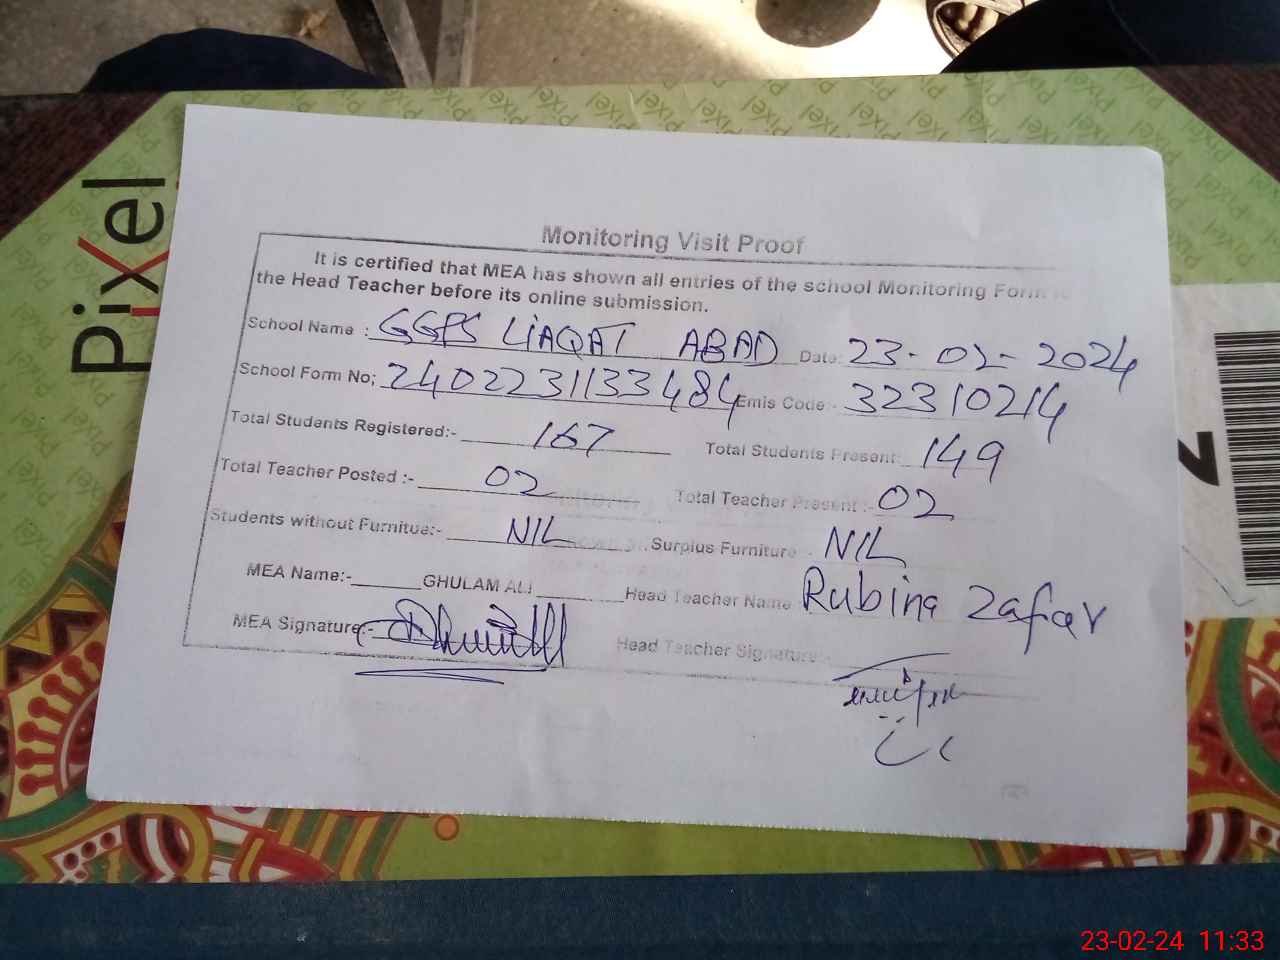 Pixel
Monitoring Visit Proof
It is certified that MEA has shown all entries of the school Monitoring Form to
the Head Teacher before its online submission.
School Name : GGPS LIAQAT ABAD Date: 23-02-2024
School Form No; 2402231133484 Emis Code:- 32310214
Total Students Registered:- 167 Total Students Present: 149
Total Teacher Posted :- 02 Total Teacher Present :- 02
Students without Furnitue:- NIL Surplus Furniture - NIL
MEA Name:- GHULAM ALI Head Teacher Name Rubina Zafar
MEA Signature:- Head Teacher Signature:-
23-02-24 11:33